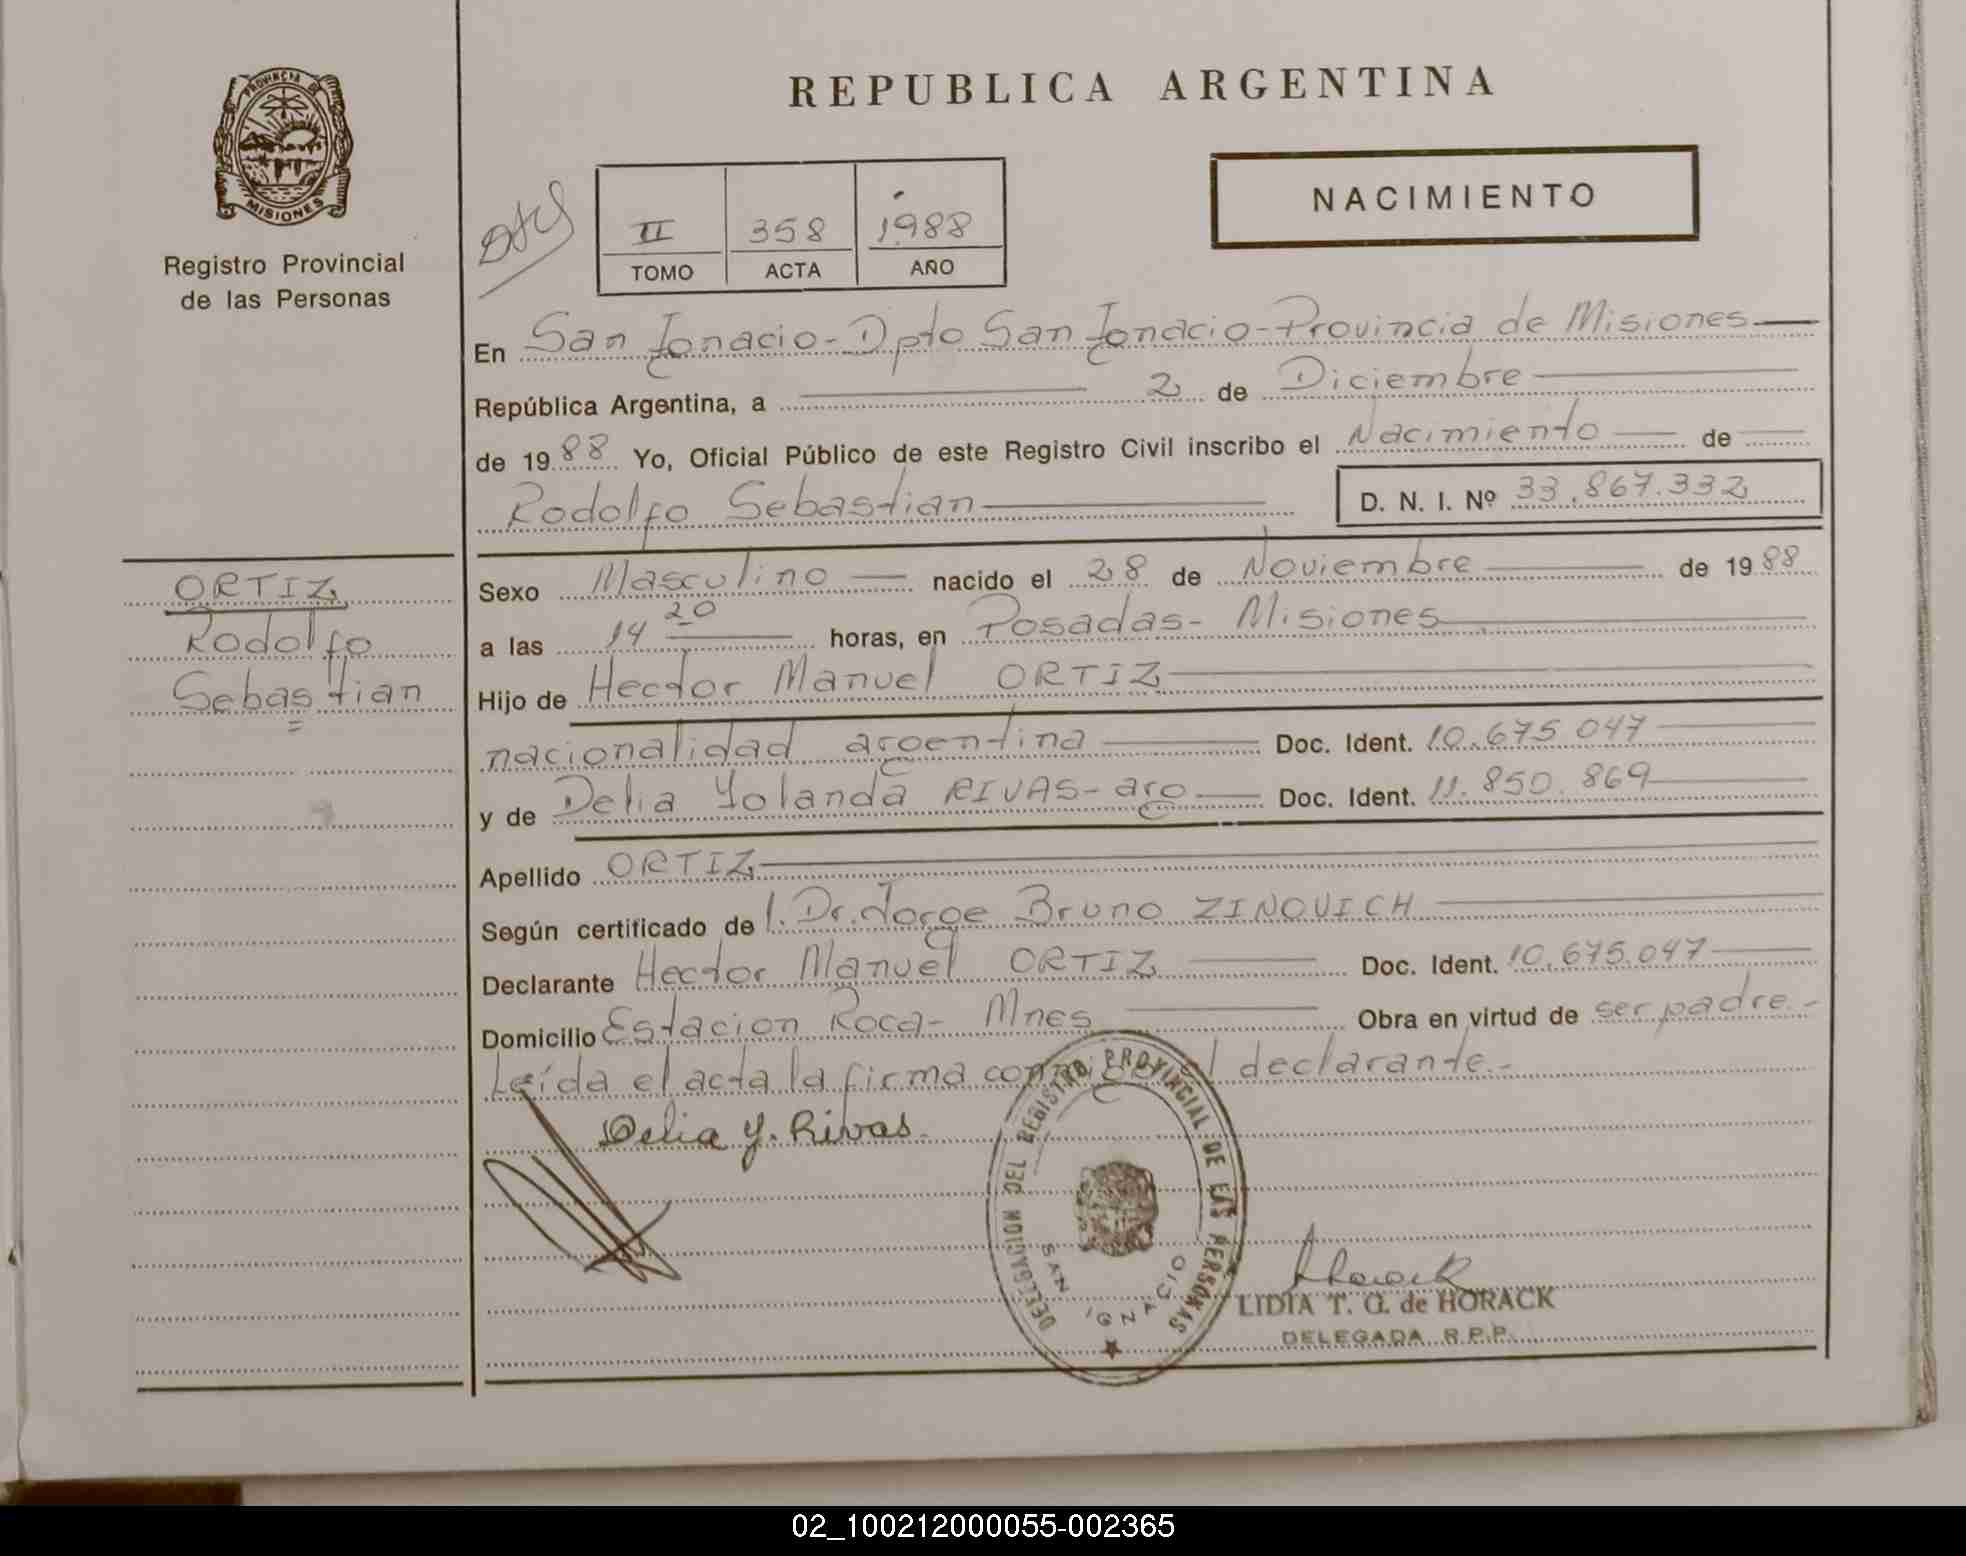 REPUBLICA ARGENTINA
PROVINCIA DE
MISIONES
Registro Provincial
de las Personas
NACIMIENTO
II 358 1988
TOMO ACTA AÑO
En San Ignacio - Dpto San Ignacio - Provincia de Misiones
República Argentina, a 2 de Diciembre
de 1988 Yo, Oficial Público de este Registro Civil inscribo el Nacimiento de
Rodolfo Sebastian D. N. I. Nº 33.867.332
ORTIZ
Rodolfo
Sebastian
Sexo Masculino nacido el 28 de Noviembre de 1988
a las 14 20 horas, en Posadas - Misiones
Hijo de Hector Manuel ORTIZ
nacionalidad argentina Doc. Ident. 10.675.047
y de Delia Yolanda RIVAS - arg Doc. Ident. 11.850.869
Apellido ORTIZ
Según certificado de l. Dr. Jorge Bruno ZINOVICH
Declarante Hector Manuel ORTIZ Doc. Ident. 10.675.047
Domicilio Estacion Roca - Mnes Obra en virtud de ser padre.-
Leída el acta la firma conmigo el declarante.-
Delia Y. Rivas
DELEGACION DEL REGISTRO PROVINCIAL DE LAS PERSONAS
SAN IGNACIO
LIDIA T. G. de HORACK
DELEGADA R.P.P.
02_100212000055-002365